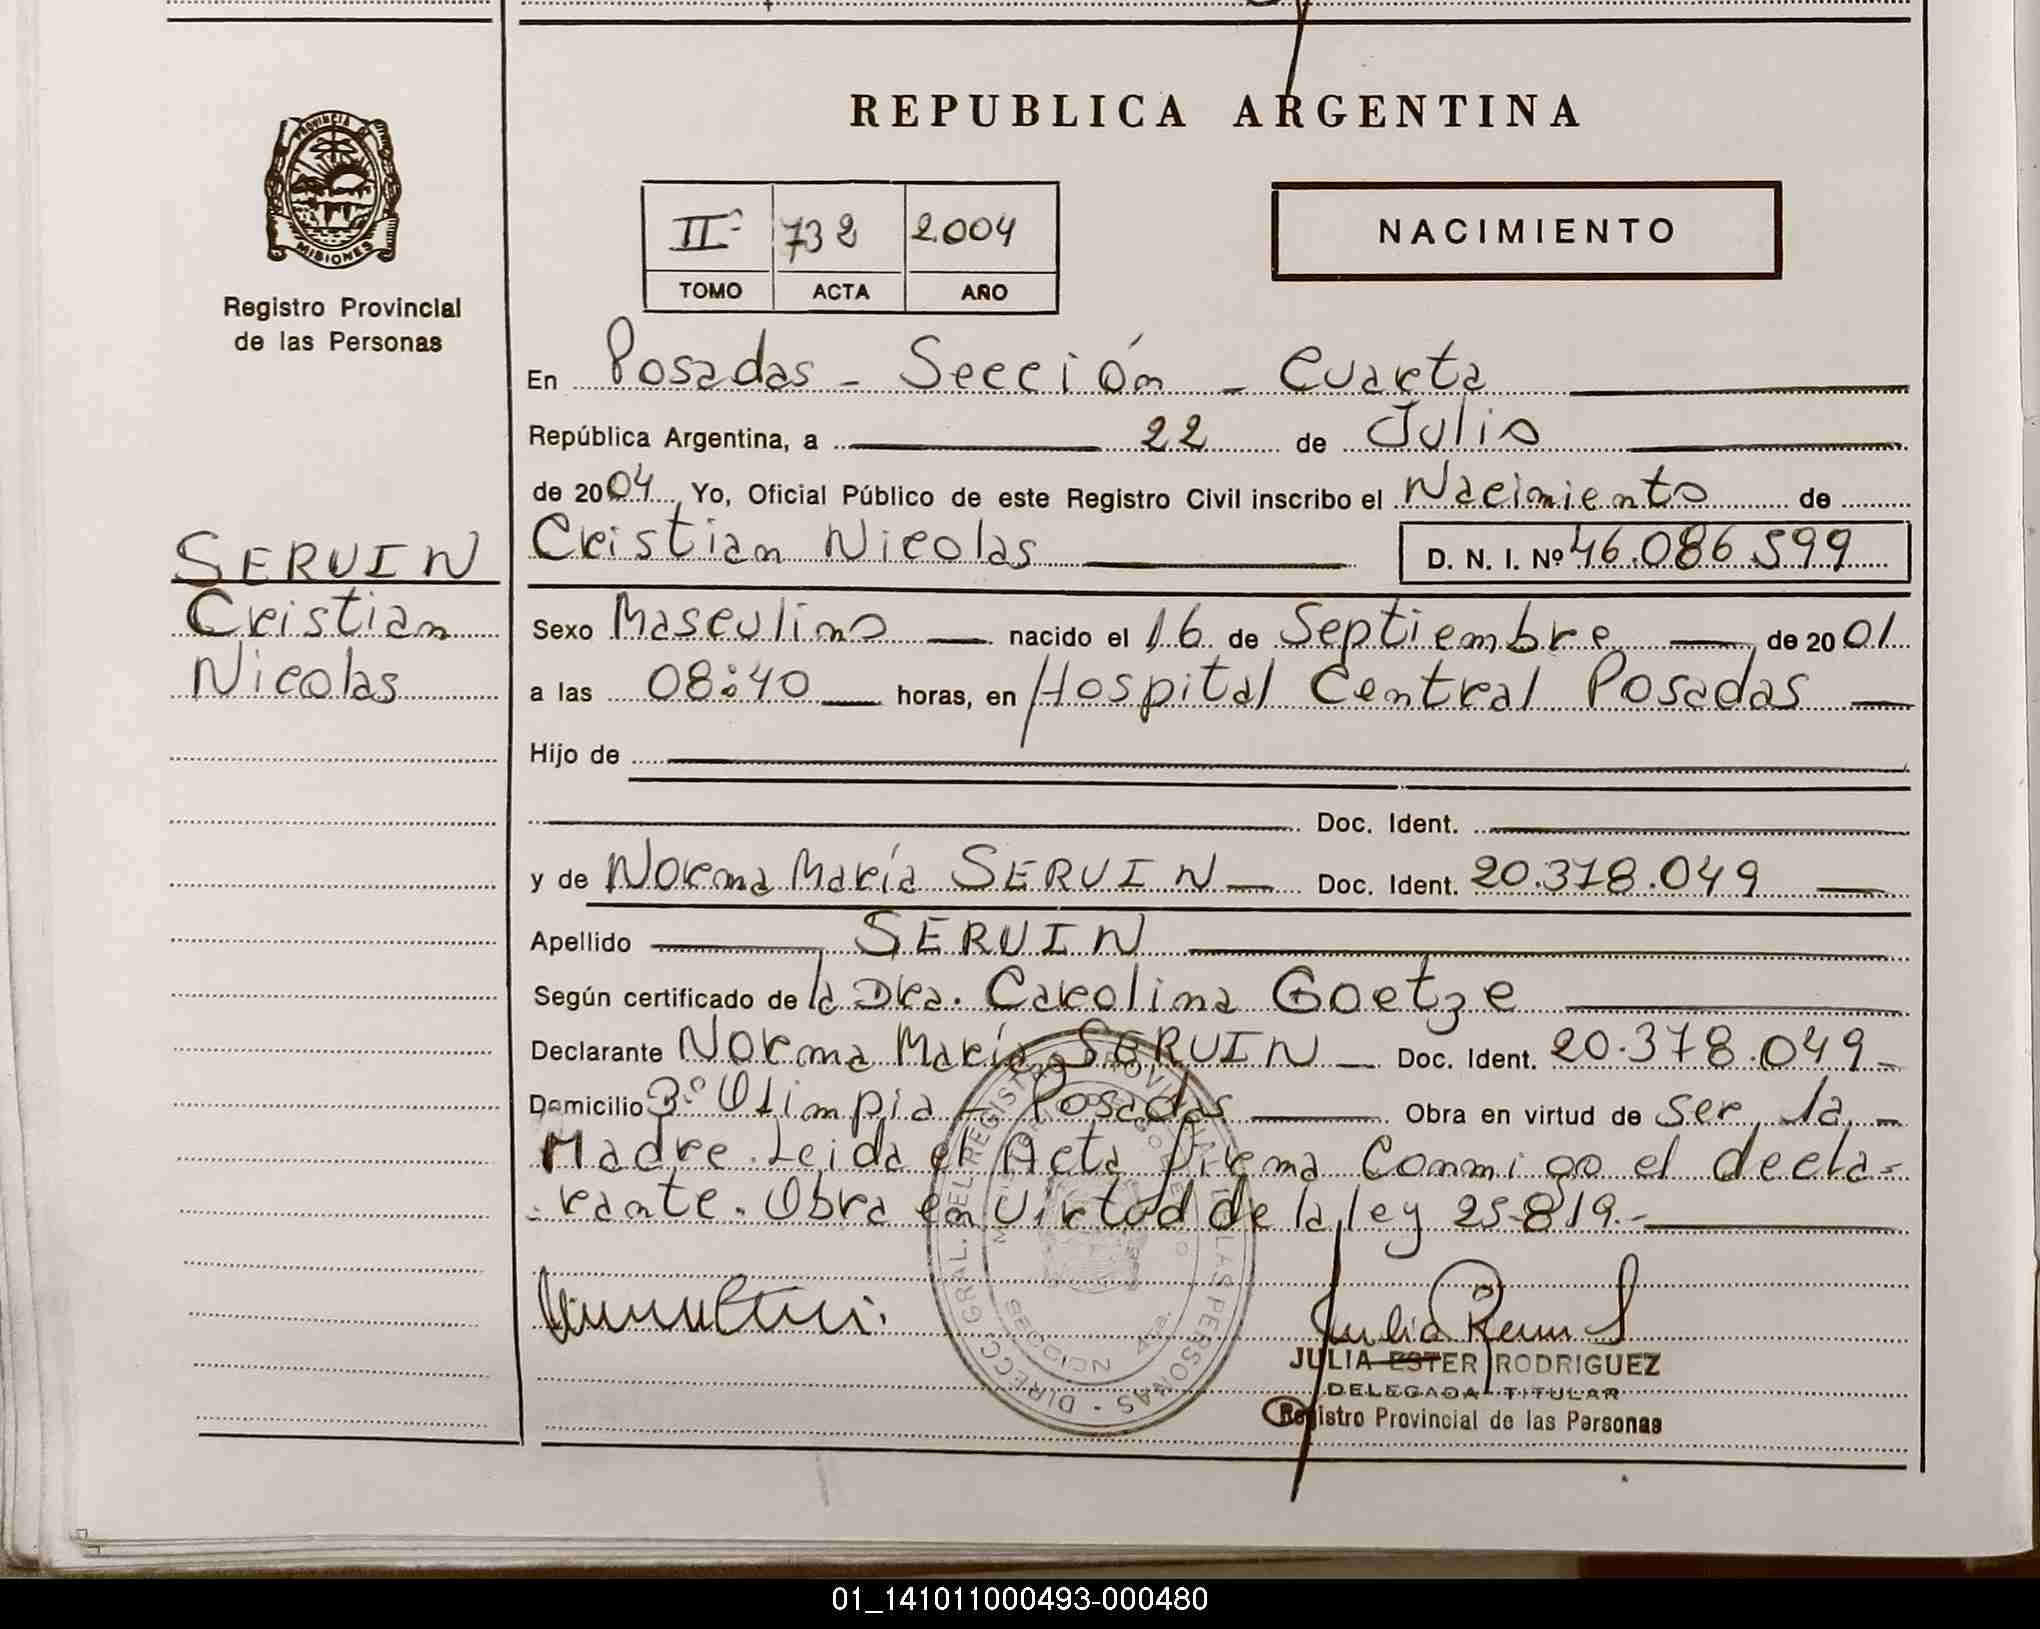 REPUBLICA ARGENTINA
PROVINCIA DE
MISIONES
Registro Provincial
de las Personas
IIº 732 2.004
TOMO ACTA AÑO
NACIMIENTO
En Posadas - Sección - Cuarta
República Argentina, a 22 de Julio
de 2004 Yo, Oficial Público de este Registro Civil inscribo el Nacimiento de
Cristian Nicolas D. N. I. Nº 46.086.599
SERVIN
Cristian
Nicolas
Sexo Masculino nacido el 16 de Septiembre de 2001
a las 08:40 horas, en Hospital Central Posadas
Hijo de
Doc. Ident.
y de Norma María SERVIN Doc. Ident. 20.378.049
Apellido SERVIN
Según certificado de la Dra. Carolina Goetze
Declarante Norma María SERVIN Doc. Ident. 20.378.049
Domicilio Bº Olimpia - Posadas Obra en virtud de ser la
Madre. Leida el Acta firma Conmigo el decla-
rante. Obra en Virtud de la ley 25.819.-
DIRECC GRAL. DEL REGISTRO PROVINCIAL DE LAS PERSONAS
SECCION 4ta.
JULIA ESTER RODRIGUEZ
DELEGADA TITULAR
Registro Provincial de las Personas
01_141011000493-000480